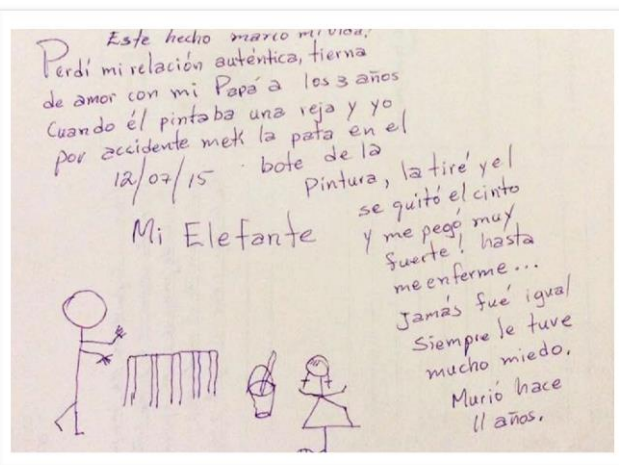 Este hecho marco mi vida.
Perdí mi relación auténtica, tierna
de amor con mi Papá a los 3 años
Cuando él pintaba una reja y yo
por accidente metí la pata en el
bote de la
12/07/15
Pintura, la tiré y el
se quitó el cinto
y me pegó muy
fuerte! hasta
me enferme...
Jamás fué igual
Siempre le tuve
mucho miedo.
Murió hace
11 años.
Mi Elefante